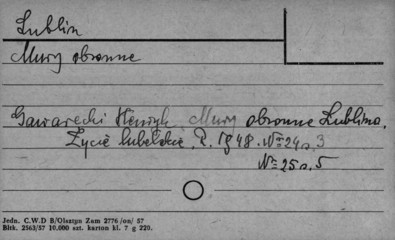 Lublin
Mury obronne
Gawarecki Henryk, Mury obronne Lublina,
Życie lubelskie, R. 1948. Nr 24 s. 3
Nr 25 s. 5
Jedn. C.W.D B/Olsztyn Zam 2776/on/ 57
Bltk. 2563/57 10.000 szt. karton kl. 7 g 220.